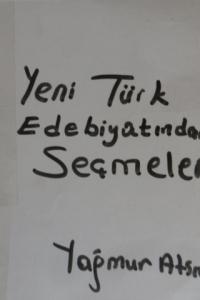 Yeni Türk
Edebiyatında
Seçmeler
Yağmur Atsı